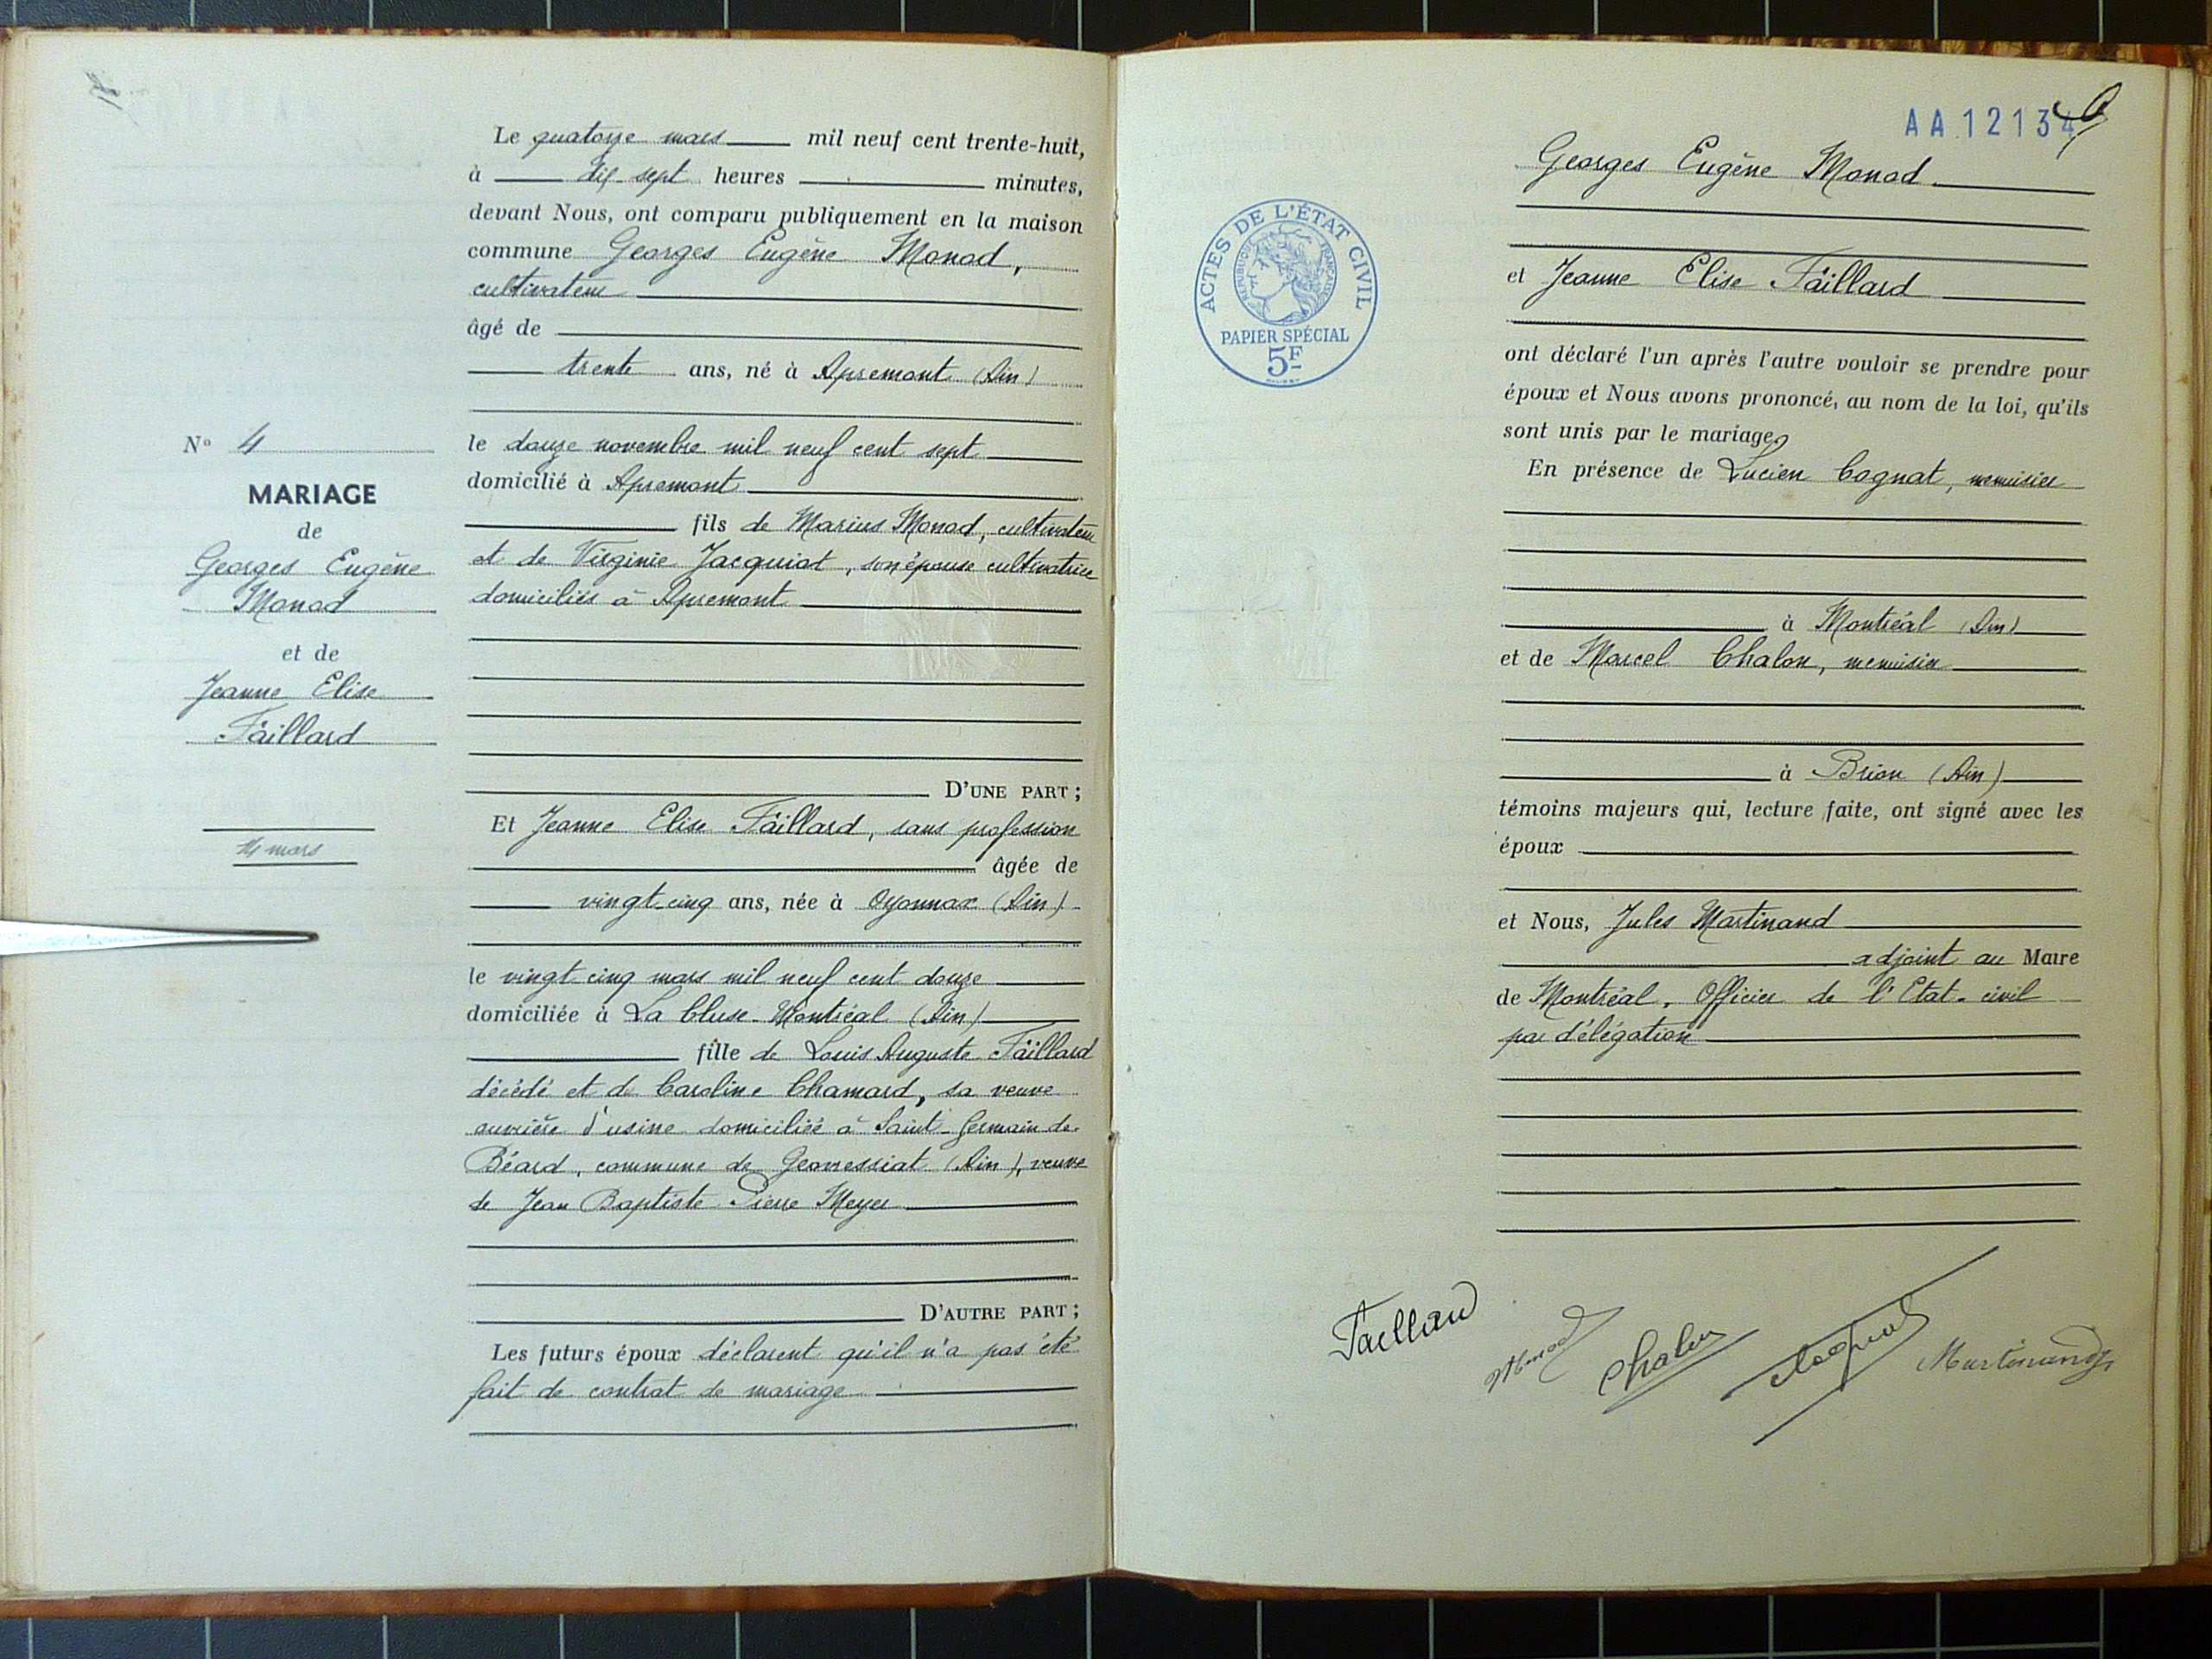 Le quatorze mars mil neuf cent trente-huit,
à dix-sept heures minutes,
devant Nous, ont comparu publiquement en la maison
commune Georges Eugène Monod,
cultivateur
âgé de
trente ans, né à Apremont (Ain)
le douze novembre mil neuf cent sept
domicilié à Apremont
fils de Marius Monod, cultivateur
et de Virginie Jacquiot, son épouse cultivatrice
domiciliés à Apremont
D'UNE PART ;
Et Jeanne Elise Taillard, sans profession
âgée de
vingt-cinq ans, née à Oyonnax (Ain)
le vingt cinq mars mil neuf cent douze
domiciliée à La Cluse-Montréal (Ain)
fille de Louis Auguste Taillard
décédé et de Caroline Chamard, sa veuve
ouvrière d'usine domiciliée à Saint-Germain de
Béard, commune de Geovressiat (Ain), veuve
de Jean Baptiste Pierre Meyer
D'AUTRE PART ;
Les futurs époux déclarent qu'il n'a pas été
fait de contrat de mariage
N° 4
MARIAGE
de
Georges Eugène
Monod
et de
Jeanne Elise
Taillard
14 mars
AA 1213
ACTES DE L'ÉTAT CIVIL
RÉPUBLIQUE FRANÇAISE
PAPIER SPÉCIAL
5F
Georges Eugène Monod
et Jeanne Elise Taillard
ont déclaré l'un après l'autre vouloir se prendre pour
époux et Nous avons prononcé, au nom de la loi, qu'ils
sont unis par le mariage,
En présence de Lucien Cognat, menuisier
à Montréal (Ain)
et de Marcel Chalon, menuisier
à Brion (Ain)
témoins majeurs qui, lecture faite, ont signé avec les
époux
et Nous, Jules Martinand
adjoint au Maire
de Montréal, Officier de l'Etat-civil
par délégation
Taillard
Monod Chalon Cognat Martinand